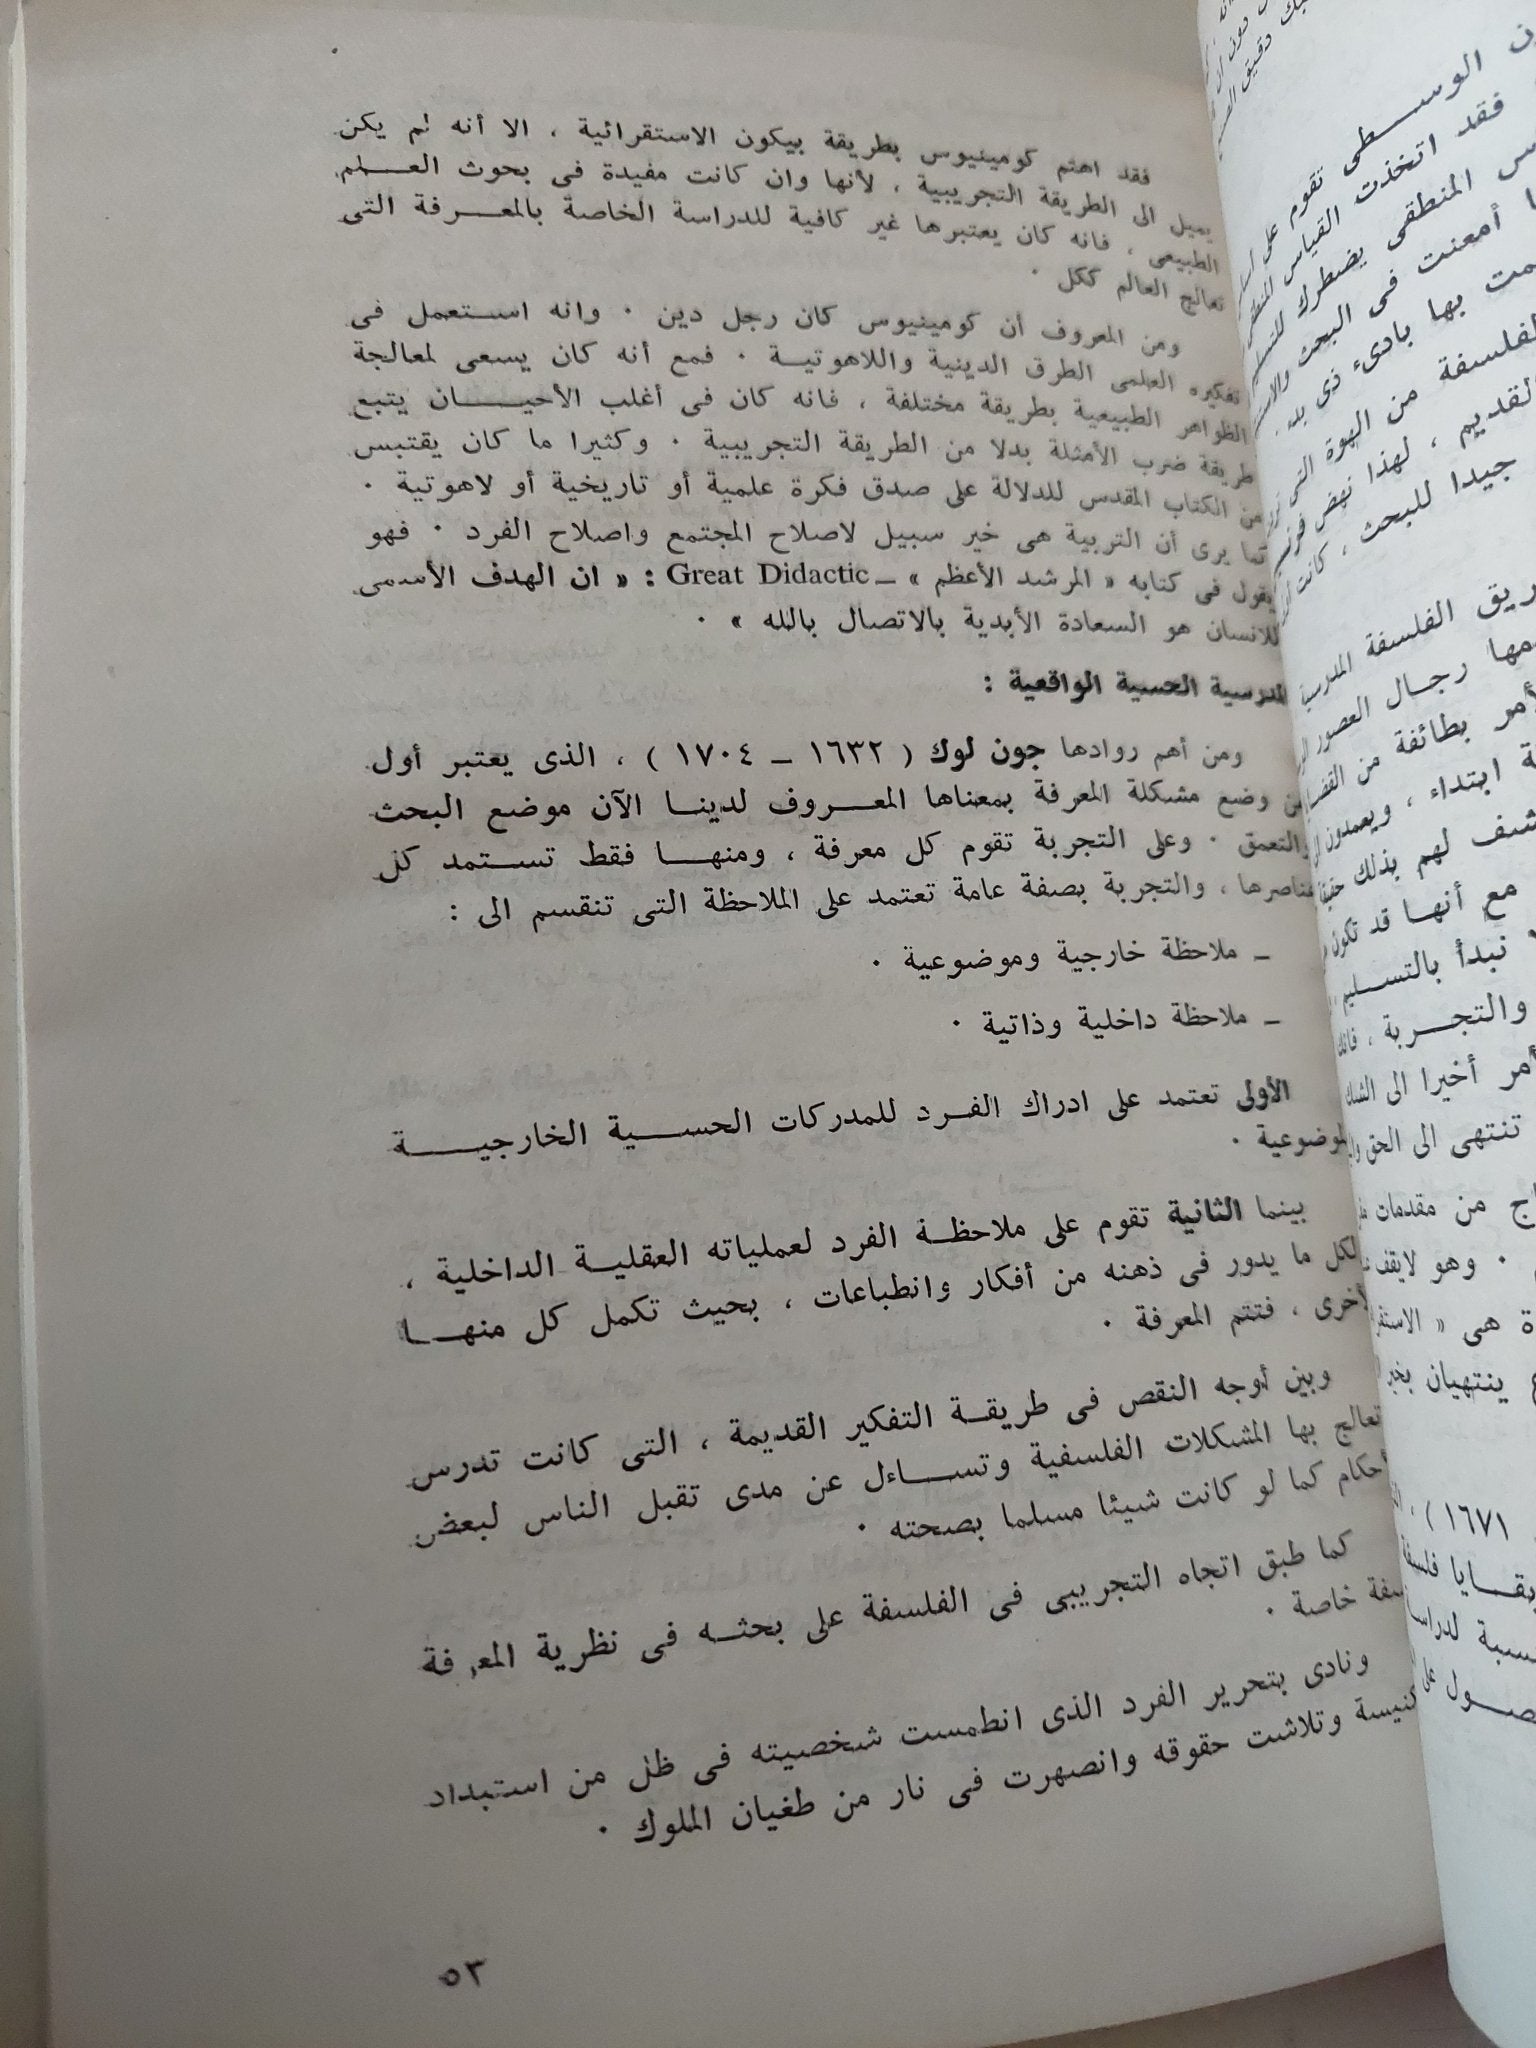 فقد اهتم كومينيوس بطريقة بيكون الاستقرائية ، الا أنه لم يكن
يميل الى الطريقة التجريبية ، لأنها وان كانت مفيدة فى بحوث العلم
الطبيعى ، فانه كان يعتبرها غير كافية للدراسة الخاصة بالمعرفة التى
تعالج العالم ككل ٠
ومن المعروف أن كومينيوس كان رجل دين ٠ وانه استعمل فى
تفكيره العلمى الطرق الدينية واللاهوتية ٠ فمع أنه كان يسعى لمعالجة
الظواهر الطبيعية بطريقة مختلفة ، فانه كان فى أغلب الأحيان يتبع
طريقة ضرب الأمثلة بدلا من الطريقة التجريبية ٠ وكثيرا ما كان يقتبس
من الكتاب المقدس للدلالة على صدق فكرة علمية أو تاريخية أو لاهوتية ٠
كما يرى أن التربية هى خير سبيل لاصلاح المجتمع واصلاح الفرد ٠ فهو
يقول فى كتابه « المرشد الأعظم » ــ Great Didactic : « ان الهدف الأسمى
للانسان هو السعادة الأبدية بالاتصال بالله » ٠
المدرسية الحسية الواقعية :
ومن أهم روادها جون لوك ( ١٦٣٢ ــ ١٧٠٤ ) ، الذى يعتبر أول
من وضع مشكلة المعرفة بمعناها المعروف لدينا الآن موضع البحث
والتعمق ٠ وعلى التجربة تقوم كل معرفة ، ومنها فقط تستمد كل
عناصرها ، والتجربة بصفة عامة تعتمد على الملاحظة التى تنقسم الى :
ــ ملاحظة خارجية وموضوعية ٠
ــ ملاحظة داخلية وذاتية ٠
الأولى تعتمد على ادراك الفرد للمدركات الحسية الخارجية
الموضوعية ٠
بينما الثانية تقوم على ملاحظة الفرد لعملياته العقلية الداخلية ،
لكل ما يدور فى ذهنه من أفكار وانطباعات ، بحيث تكمل كل منها
الأخرى ، فتتم المعرفة ٠
وبين أوجه النقص فى طريقة التفكير القديمة ، التى كانت تدرس
تعالج بها المشكلات الفلسفية وتساءل عن مدى تقبل الناس لبعض
الأحكام كما لو كانت شيئا مسلما بصحته ٠
كما طبق اتجاه التجريبى فى الفلسفة على بحثه فى نظرية المعرفة
خاصة ٠
ونادى بتحرير الفرد الذى انطمست شخصيته فى ظل من استبداد
الكنيسة وتلاشت حقوقه وانصهرت فى نار من طغيان الملوك ٠
٥٣
الوسطى تقوم على
فقد اتخذت القياس
المنطقى يضطرك
أمعنت فى البحث
بها بادىء ذى بدء ٠
من الهوة التى
، لهذا نهض
جيدا للبحث ، كانت
الفلسفة المدرسية
رجال العصور
بطائفة من
ابتداء ، ويعمدون
لهم بذلك
مع أنها قد تكون
نبدأ بالتسليم
والتجربة ،
أخيرا الى الشك
تنتهى الى الحق
من مقدمات
٠ وهو لايقف
هى «
ينتهيان
١٦٧١ ) ،